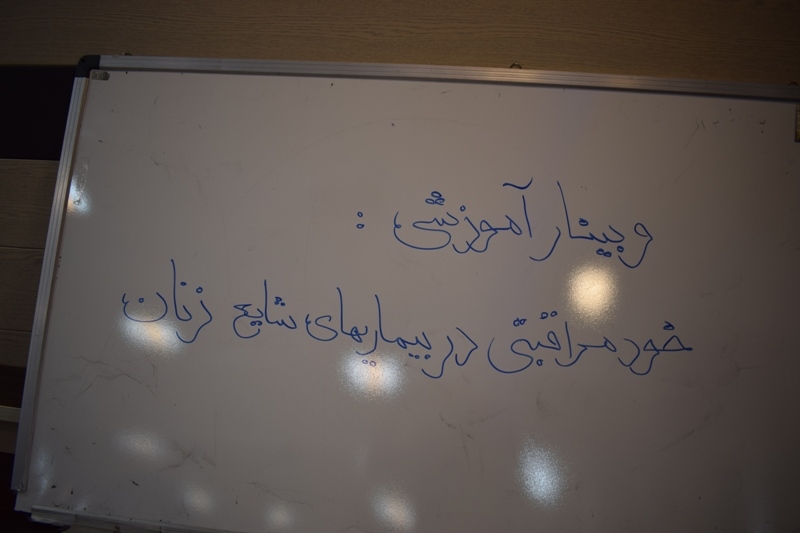 وبینار آموزشی :
خودمراقبتی در بیماریهای شایع زنان